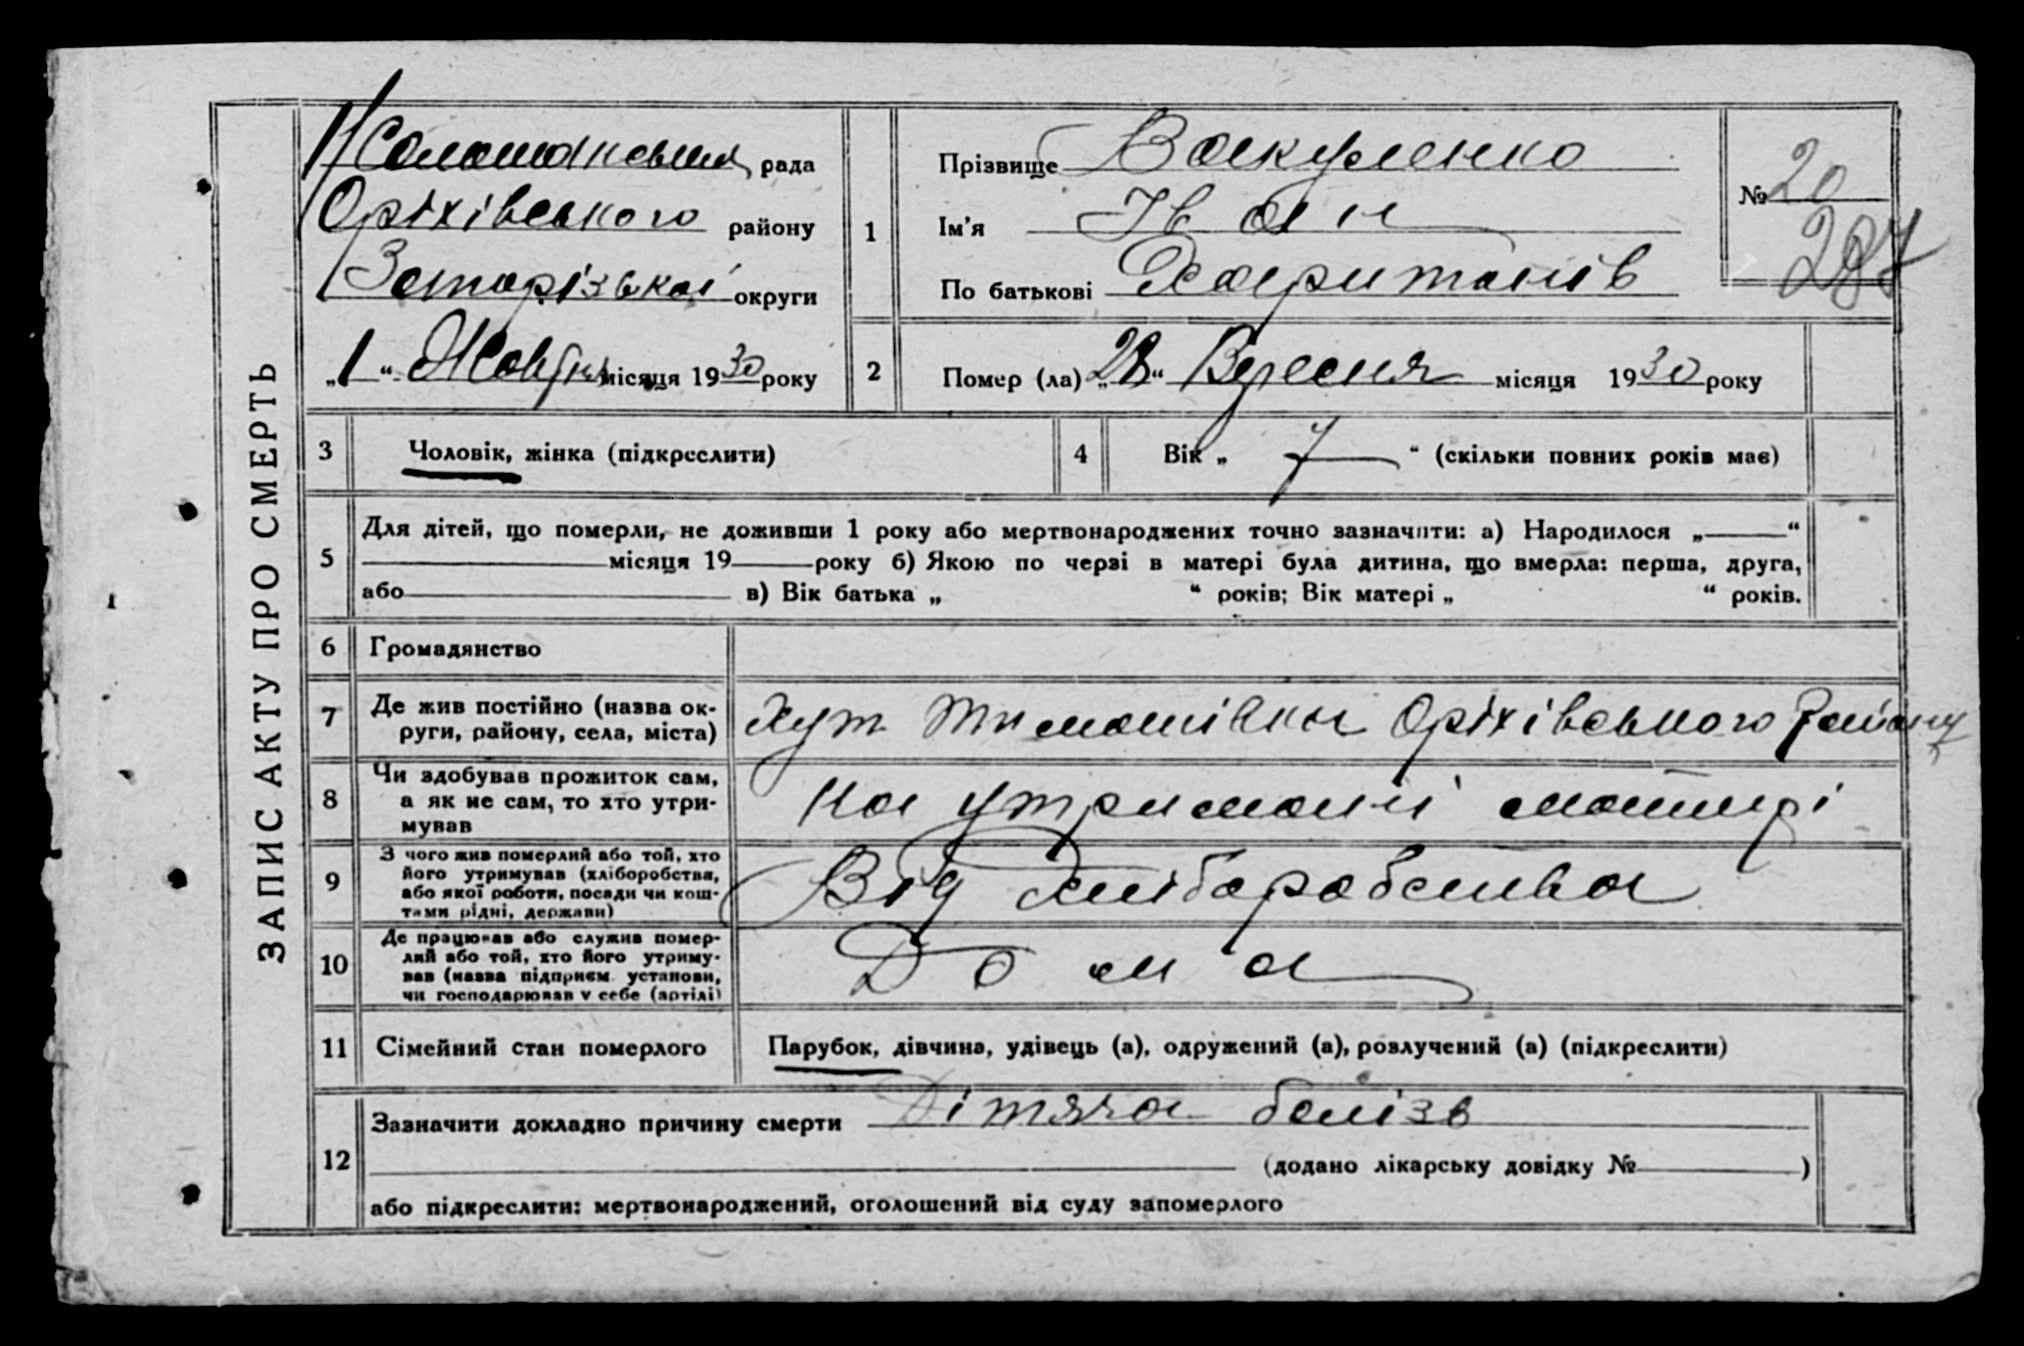 ЗАПИС АКТУ ПРО СМЕРТЬ
рада
Оріхівського району
Запорізької округи
„1“ Жовтня місяця 1930 року
1
Прізвище Вакуленко
Ім'я Іван
По батькові Харитонів
№ 20
287
2
Помер (ла) „28“ Вересня місяця 1930 року
3
Чоловік, жінка (підкреслити)
4
Вік „ 7 “ (скільки повних років має)
5
Для дітей, що померли, не доживши 1 року або мертвонароджених точно зазначити: а) Народилося „ “
місяця 19 року б) Якою по черзі в матері була дитина, що вмерла: перша, друга,
або в) Вік батька „ “ років; Вік матері „ “ років.
6
Громадянство
7
Де жив постійно (назва ок-
руги, району, села, міста)
Хут Тимошівка Оріхівського Району
8
Чи здобував прожиток сам,
а як не сам, то хто утри-
мував
На утримані матирі
9
З чого жив померлий або той, хто
його утримував (хліборобства,
або якої роботи, посади чи кош-
тами рідні, держави)
Від хліборобства
10
Де працював або служив помер-
лий або той, хто його утриму-
вав (назва підприєм. установи,
чи господарював у себе (артілі)
Дома
11
Сімейний стан померлого
Парубок, дівчина, удівець (а), одружений (а), розлучений (а) (підкреслити)
12
Зазначити докладно причину смерти Дітяча болізв
(додано лікарську довідку № )
або підкреслити: мертвонароджений, оголошений від суду запомерлого